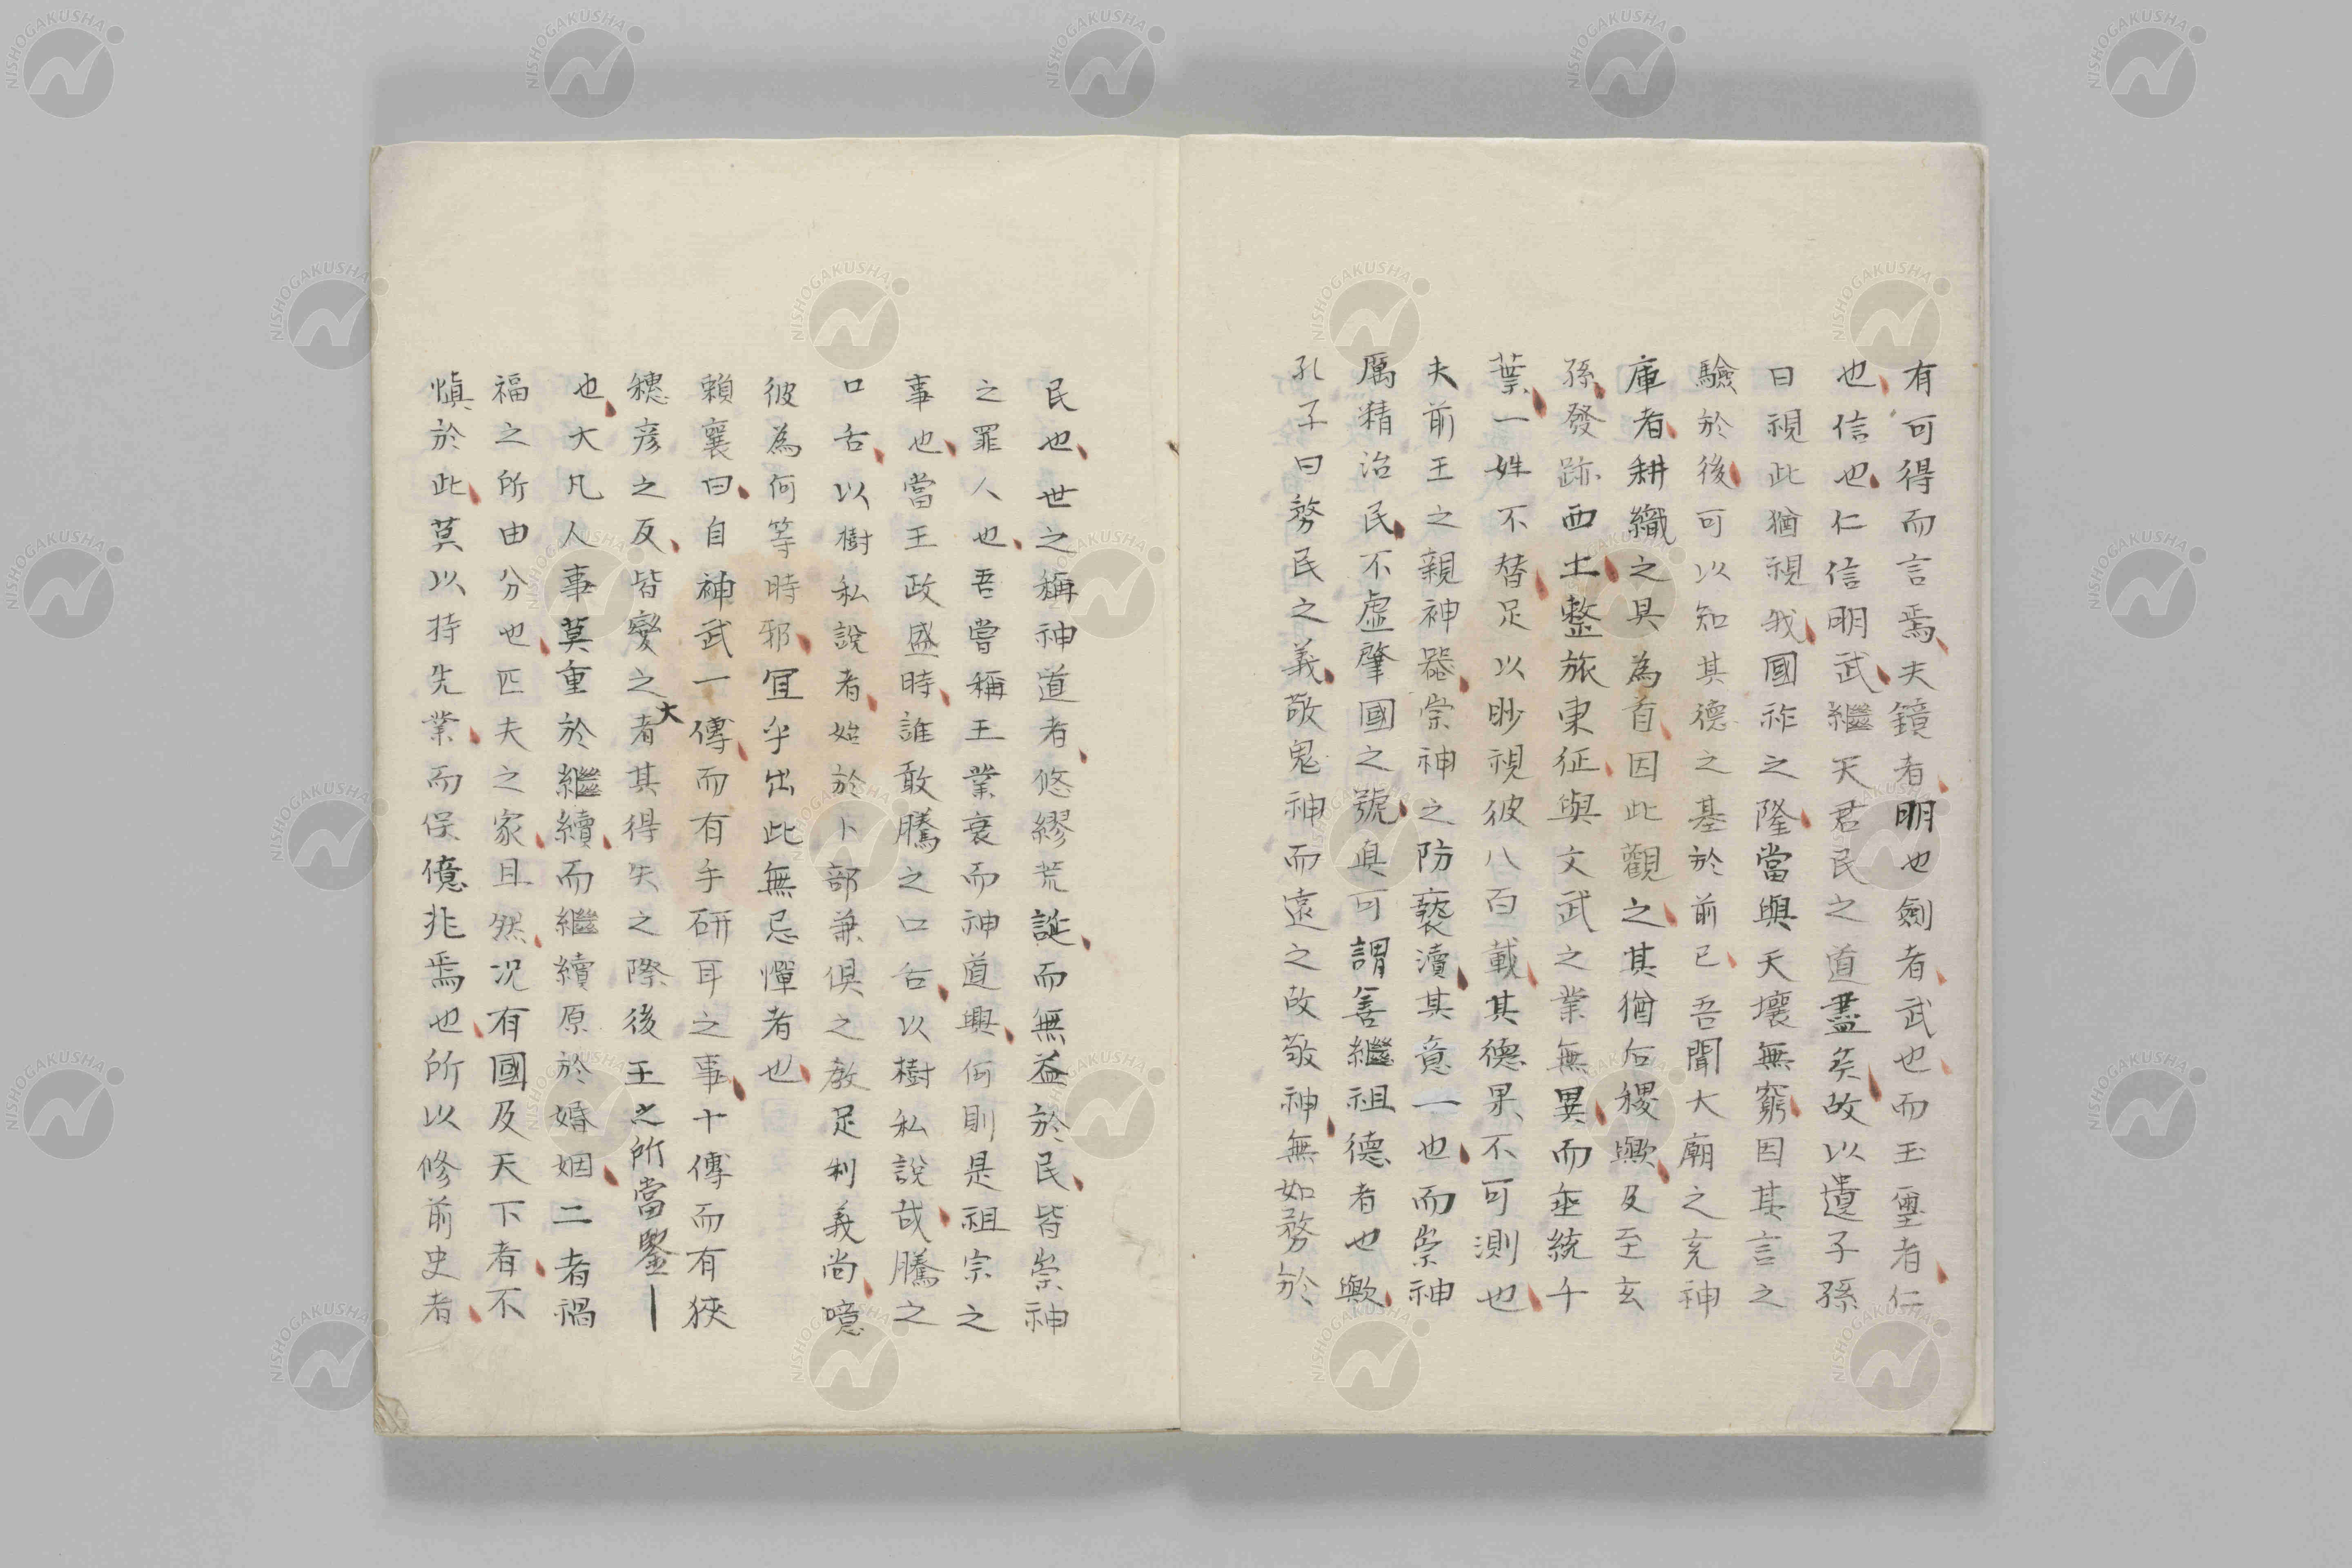 有可得而言焉夫鏡者明也劍者武也而玉璽者仁
也信也仁信明武繼天君民之道盡矣故以遺子孫
曰視此猶視我國祚之隆當與天壤無窮因其言之
驗於後可以知其德之基於前已吾聞大廟之充神
庫者耕織之具為首因此觀之其猶后稷歟及至玄
孫發跡西土整旅東征與文武之業無異而垂統千
葉一姓不替足以眇視彼八百載其德果不可測也
夫前王之親神器崇神之防褻瀆其意一也而崇神
厲精治民不虛肇國之號真可謂善繼祖德者也歟
孔子曰務民之義敬鬼神而遠之故敬神無如務於
民也世之稱神道者悠繆荒誕而無益於民皆崇神
之罪人也吾嘗稱王業衰而神道興何則是祖宗之
事也當王政盛時誰敢騰之口舌以樹私說哉騰之
口舌以樹私說者始於卜部兼俱之教足利義尚噫
彼為何等時邪宜乎出此無忌憚者也
賴襄曰自神武一傳而有手研耳之事十傳而有狹
穗彥之反皆變之大者其得失之際後王之所當鑒
也大凡人事莫重於繼續而繼續原於婚姻二者禍
福之所由分也匹夫之家且然况有國及天下者不
慎於此莫以持先業而保億兆焉也所以修前史者
NISHOGAKUSHA